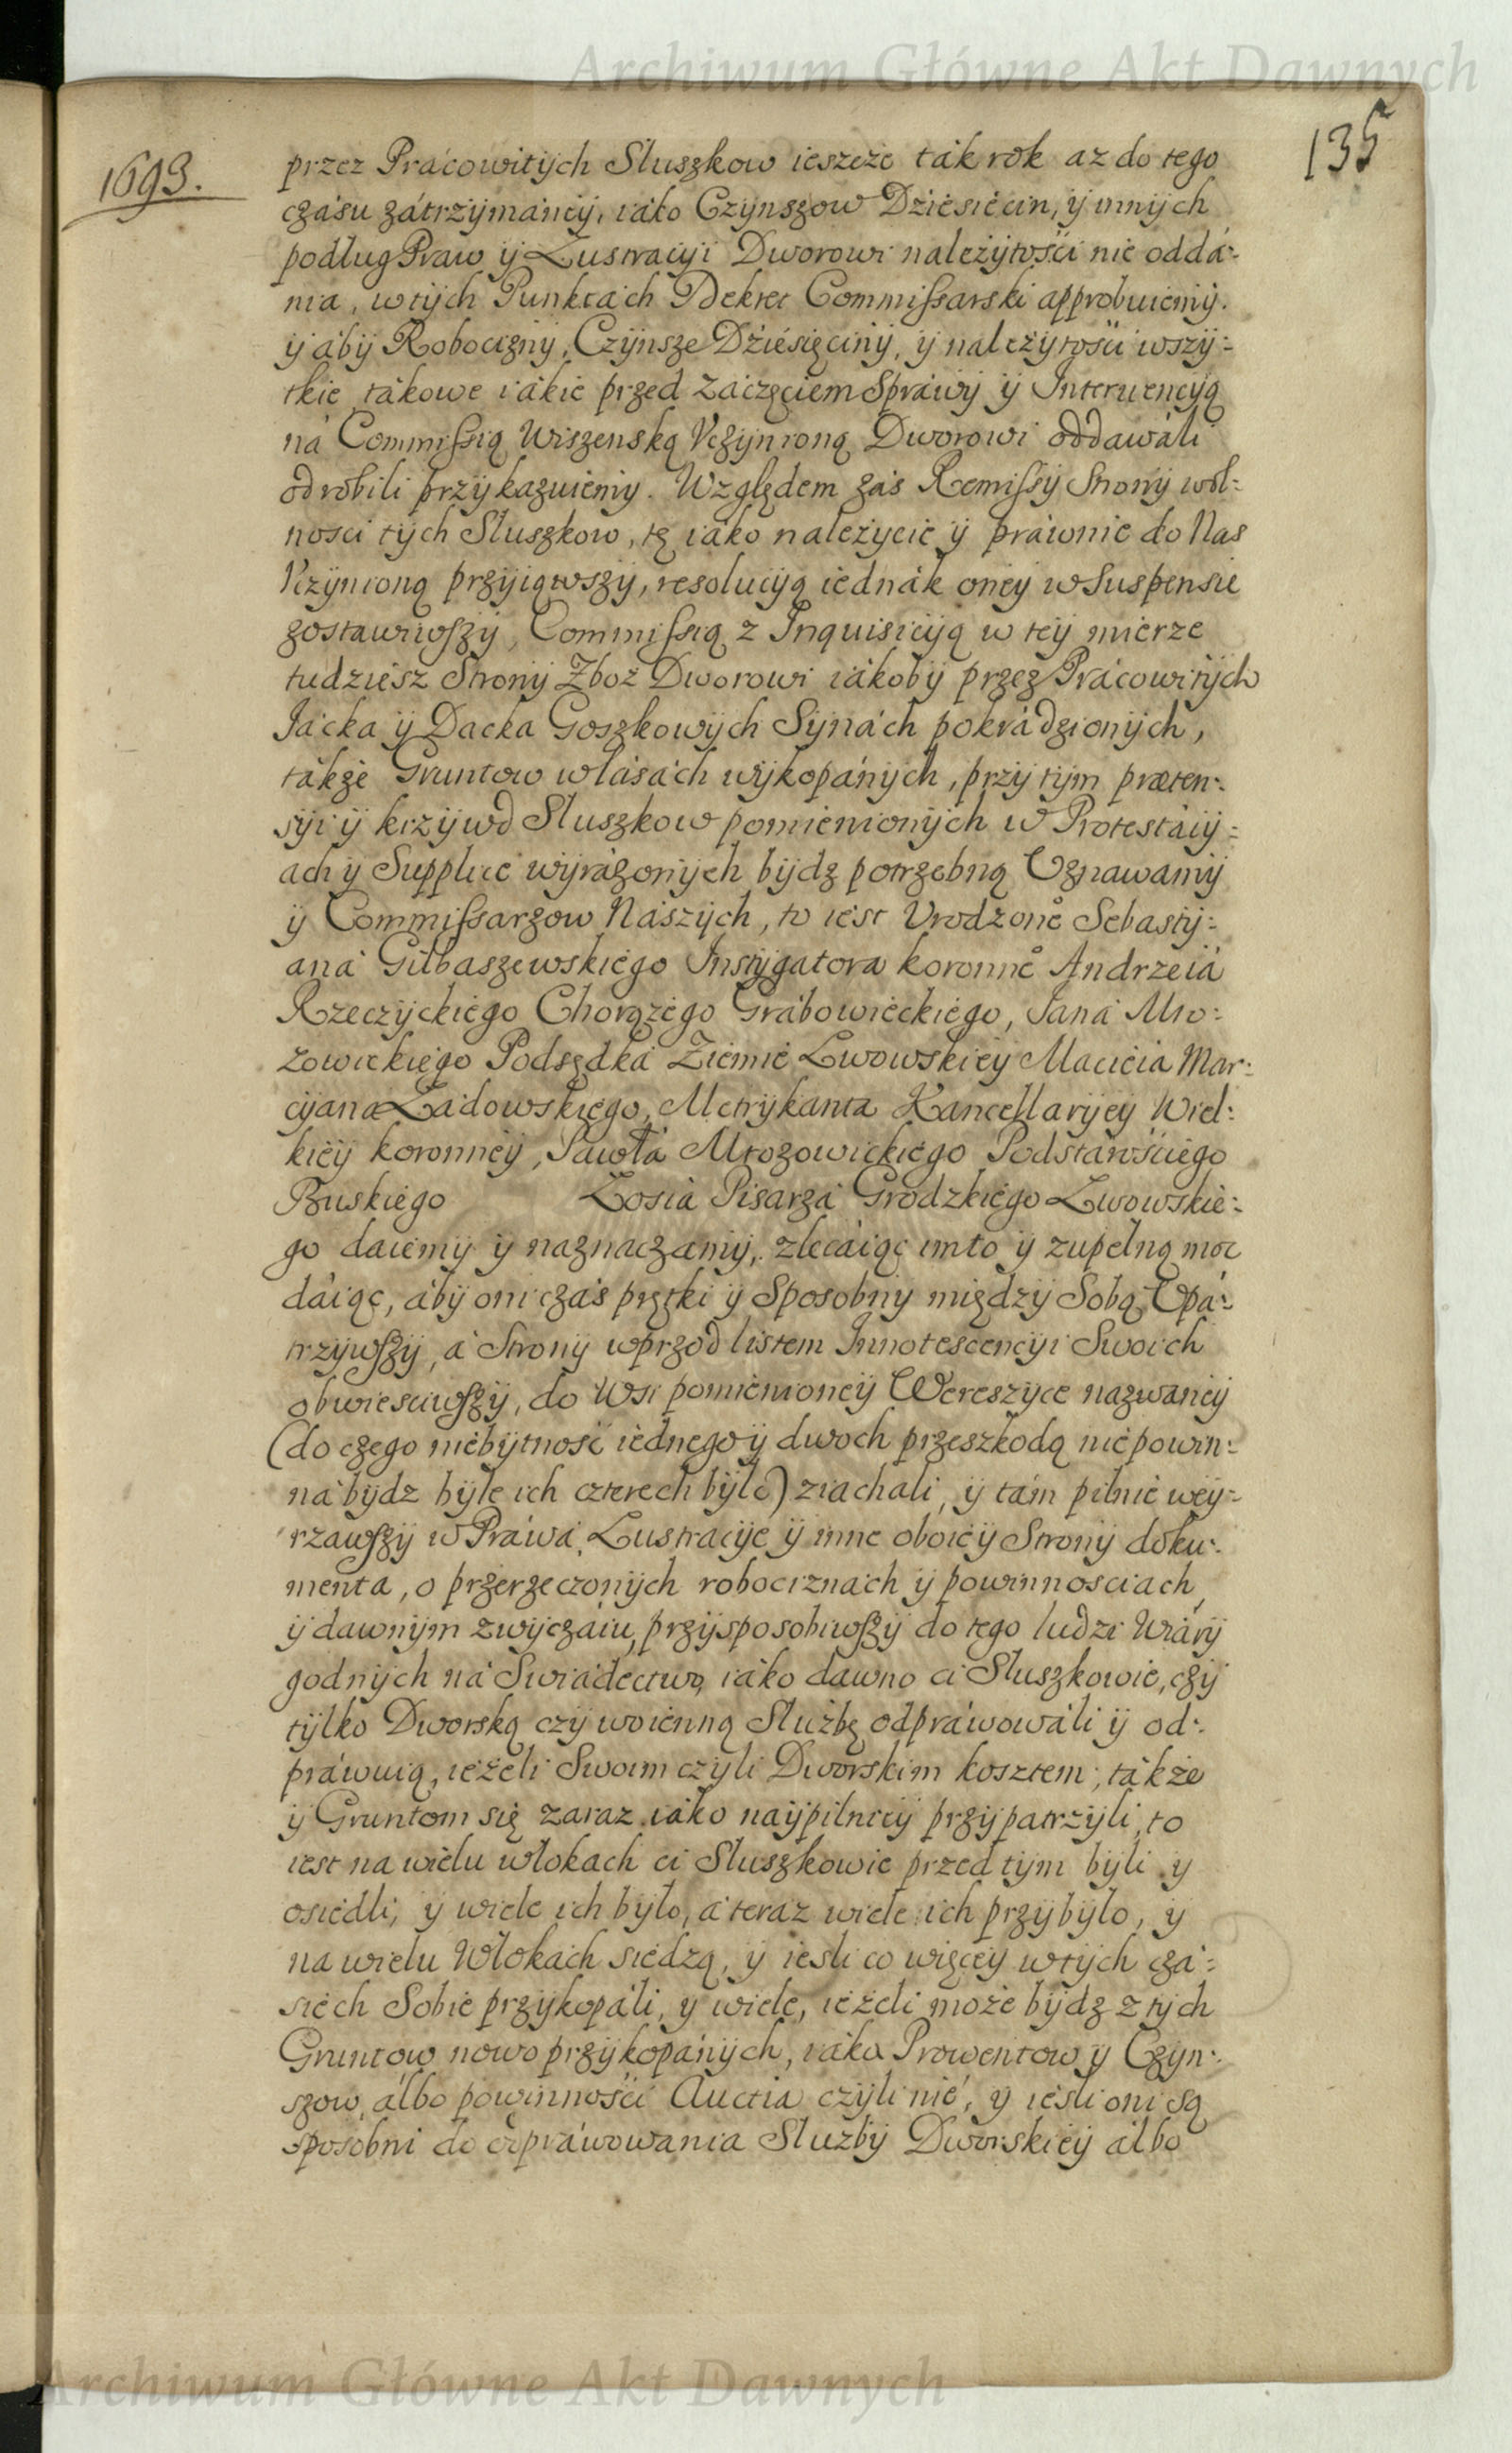 Archiwum Główne Akt Dawnych
135
1693.
przez Pracowitych Sluszkow ieszcze ták rok az do tego
czásu zátrzymáney, iáko Czynszow Dziesięcin, y innych
podług Praw y Lustracyi Dworowi należytości nie oddá-
nia, w tych Punktach Dekret Commissarski approbuiemy.
y áby Robocizny, Czynsze Dziesięciny, y należytości wszy-
tkie tákowe iákie przed zaczęciem Spráwy y Interwencyą
ná Commissią Wiszenską Vczynioną Dworowi oddawáli
odrobili przykazuiemy. Względem zaś Remissy Strony wol-
nosci tych Sluszkow, tę iáko należycie y práwnie do Nas
Vczynioną przyiąwszy, resolucyą iednák oney w Suspensie
zostawiwszy, Commissią z Inquisicyą w tey mierze
tudziesz Strony Zboż Dworowi iákoby przez Prácowitych
Jácka y Dacka Goszkowych Synách pokrádzionych,
tákże Gruntow w lásách wykopánych, przy tym præten-
syi y krzywd Sluszkow pomienionych w Protestácy-
ach y Supplice wyráżonych bydz potrzebną Uznawamy
y Commissarzow Nászych, to iest Vrodzone͠ Sebasty-
aná Gilbaszewskiego Instygatora koronne͠ Andrzeiá
Rzeczyckiego Chorążego Grábowieckiego, Janá Mro-
zowickiego Podsędká Ziemie Lwowskiey Macieia Mar-
cyana Ładowskiego, Metrykanta Kancellaryey Wiel-
kiey koronney, Páwłá Mrozowickiego Podstarościego
Buskiego Łosiá Pisarzá Grodzkiego Lwowskie-
go daiemy y naznaczamy, zlecáiąc im to y zupełną moc
dáiąc, áby oni czás prętki y Sposobny między Sobą Upá-
trzywszy, á Strony wprzod listem Innotescencyi Swoich
obwiesciwszy, do Wsi pomienioney Wereszyce nazwáney
(do czego niebytność iednego y dwoch przeszkodą nie powin-
ná bydz byle ich czterech było) ziachali, y tám pilnie wey-
rzawszy w Práwá, Lustracye y inne oboiey Strony doku-
menta, o przerzeczonych robociznách y powinnosciach,
y dawnym zwyczáiu, przysposobiwszy do tego ludzi Wiáry
godnych ná Swiádectwo, iáko dawno ci Sluszkowie, czy
tylko Dworską czy woienną Służbę odpráwowáli y od-
práwuią, ieżeli Swoim czyli Dworskim kosztem, tákże
y Gruntom się zaraz iáko naypilniey przypatrzyli, to
iest na wielu włokach ci Sluszkowie przed tym byli y
osiedli, y wiele ich było, á teraz wiele ich przybyło, y
na wielu Włokach siedzą, y iesli co więcey w tych czá-
siech Sobie przykopáli, y wiele, ieżeli może bydz z tych
Gruntow nowo przykopánych, iáka Prowentow y Czyn-
szow álbo powinności Auctia czyli nie, y iesli oni są
sposobni do odpráwowania Służby Dworskiey álbo
Archiwum Główne Akt Dawnych